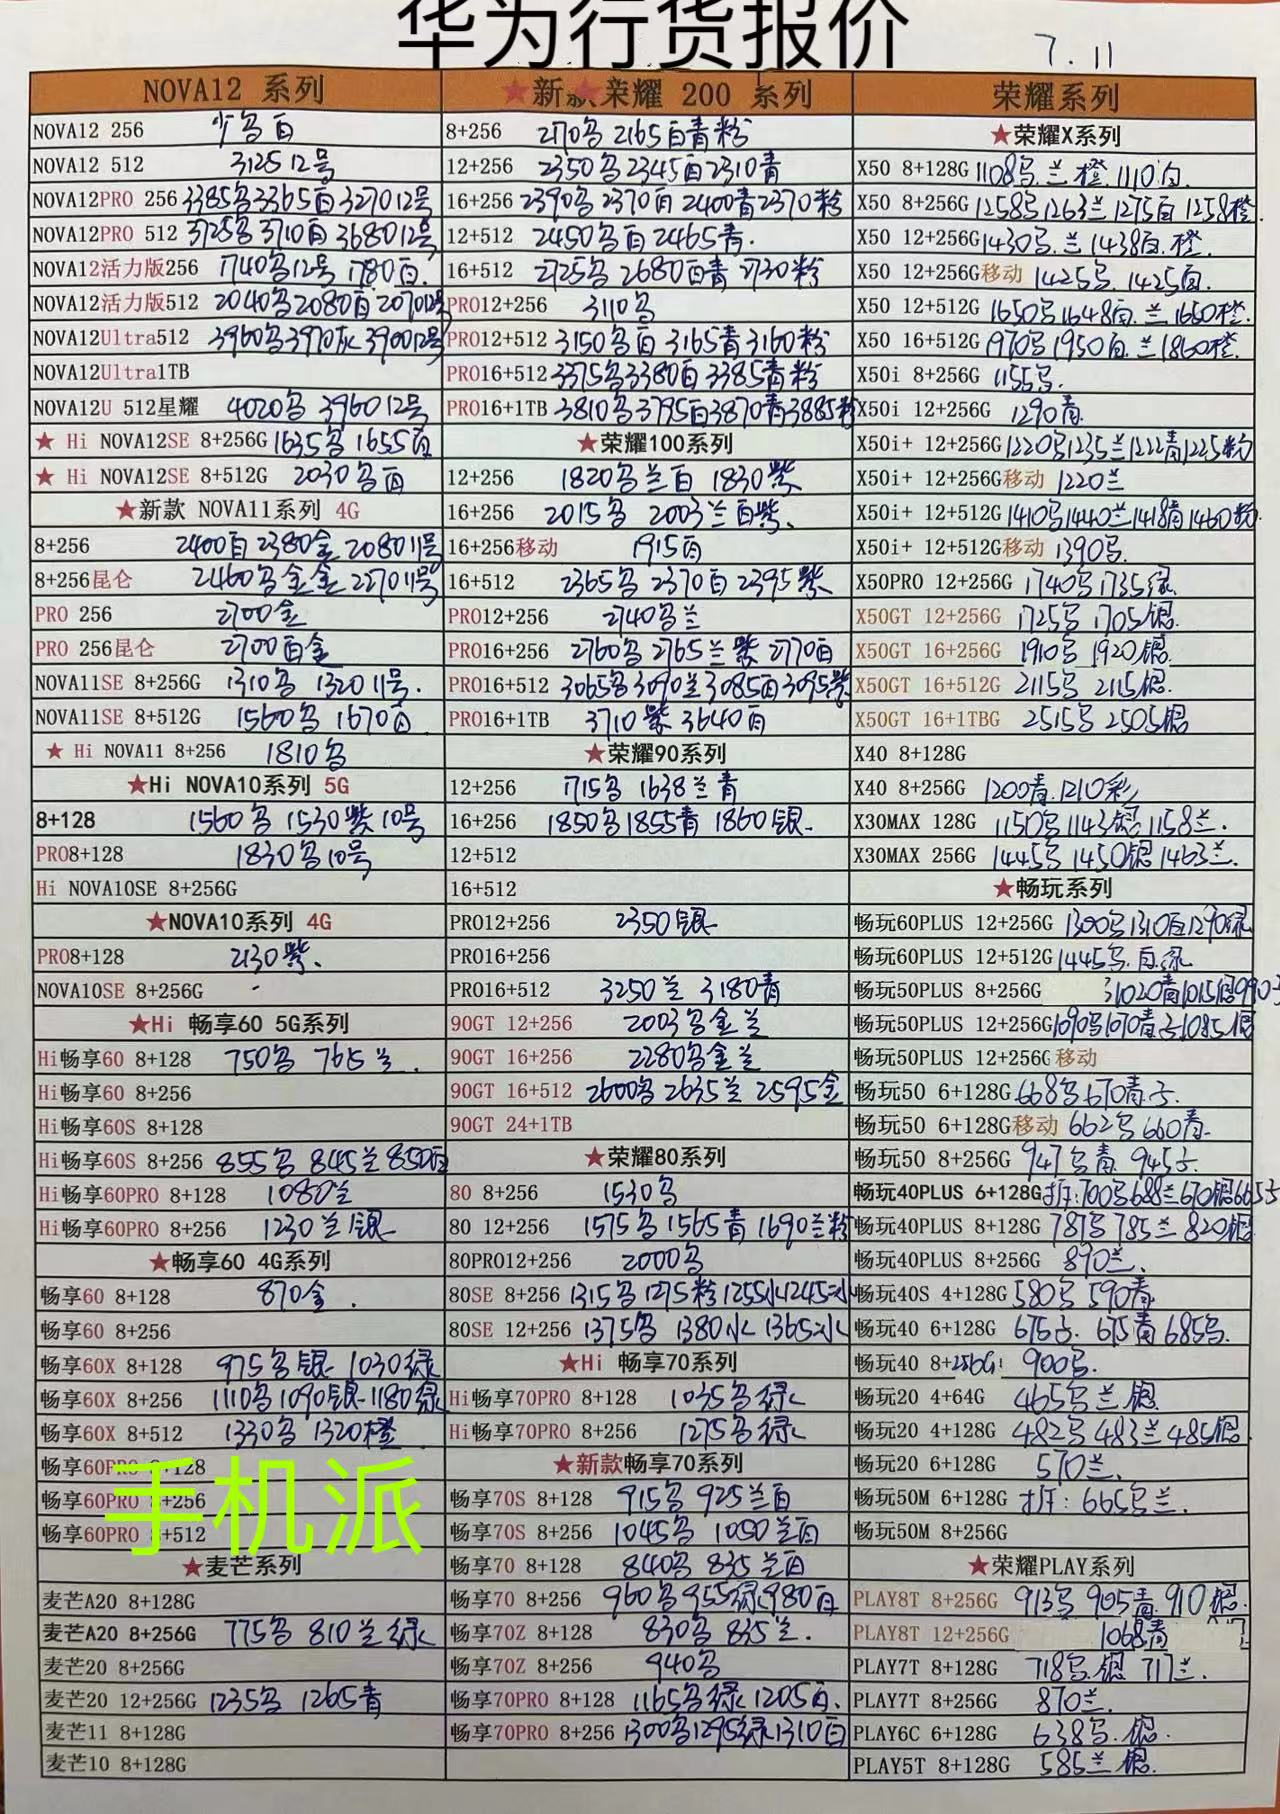 华为行货报价
7.11
NOVA12 系列
NOVA12 256
NOVA12 512 3125 12号
NOVA12PRO 256 3385鸟3365百3270 12号
NOVA12PRO 512 3725鸟3710百3680 12号
NOVA12活力版256 1740鸟12号 1780百.
NOVA12活力版512 2040鸟2080百2070 12号
NOVA12Ultra512 3960鸟3970灰3900 12号
NOVA12Ultra1TB
NOVA12U 512星耀 4020鸟 3960 12号
★ Hi NOVA12SE 8+256G 1635鸟 1655百
★ Hi NOVA12SE 8+512G 2030鸟百
★新款 NOVA11系列 4G
8+256 2400百2380金2080 11号
8+256昆仑 2460鸟金金2270 11号
PRO 256 2700金
PRO 256昆仑 2700百金
NOVA11SE 8+256G 1310鸟 1320 11号.
NOVA11SE 8+512G 1560鸟 1670百
★ Hi NOVA11 8+256 1810鸟
★Hi NOVA10系列 5G
8+128 1560鸟 1530紫10号
PRO8+128 1830鸟10号
Hi NOVA10SE 8+256G
★NOVA10系列 4G
PRO8+128 2130紫.
NOVA10SE 8+256G
★Hi 畅享60 5G系列
Hi畅享60 8+128 750鸟 765兰.
Hi畅享60 8+256
Hi畅享60S 8+128
Hi畅享60S 8+256 855鸟 845兰850百
Hi畅享60PRO 8+128 1080兰
Hi畅享60PRO 8+256 1230兰银
★畅享60 4G系列
畅享60 8+128 870金.
畅享60 8+256
畅享60X 8+128 975鸟银 1030绿
畅享60X 8+256 1110鸟1090银1180绿
畅享60X 8+512 1330鸟 1320橙
畅享60PRO 8+128
畅享60PRO 8+256
畅享60PRO 8+512
手机派
★麦芒系列
麦芒A20 8+128G
麦芒A20 8+256G 775鸟 810兰绿
麦芒20 8+256G
麦芒20 12+256G 1235鸟 1265青
麦芒11 8+128G
麦芒10 8+128G
★新款荣耀 200 系列
8+256 2170鸟 2165百青粉
12+256 2350鸟2345百2310青
16+256 2390鸟2370百2400青2370粉
12+512 2450鸟百2465青.
16+512 2725鸟2680百青2730粉
PRO12+256 3110鸟
PRO12+512 3150鸟百3165青3160粉
PRO16+512 3375鸟3380百3385青粉
PRO16+1TB 3810鸟3795百3870青3885粉
★荣耀100系列
12+256 1820鸟兰百 1830紫
16+256 2015鸟 2003兰百紫.
16+256移动 1915百
16+512 2365鸟 2370百2395紫
PRO12+256 2740鸟兰
PRO16+256 2760鸟2765兰紫2770百
PRO16+512 3065鸟3090兰3085百3095紫
PRO16+1TB 3710紫 3640百
★荣耀90系列
12+256 1715鸟 1638兰青
16+256 1850鸟1855青1860银.
12+512
16+512
PRO12+256 2350银
PRO16+256
PRO16+512 3250兰 3180青
90GT 12+256 2003鸟金兰
90GT 16+256 2280鸟金兰
90GT 16+512 2600鸟2635兰2595金
90GT 24+1TB
★荣耀80系列
80 8+256 1530鸟
80 12+256 1575鸟1565青1690兰粉
80PRO12+256 2000鸟
80SE 8+256 1315鸟1275粉1255水1245冰
80SE 12+256 1375鸟 1380水1365冰
★Hi 畅享70系列
Hi畅享70PRO 8+128 1035鸟绿
Hi畅享70PRO 8+256 1275鸟绿
★新款畅享70系列
畅享70S 8+128 915鸟 925兰百
畅享70S 8+256 1045鸟 1050兰百
畅享70 8+128 840鸟 835兰百
畅享70 8+256 960鸟955绿980百
畅享70Z 8+128 830鸟 835兰.
畅享70Z 8+256 940鸟
畅享70PRO 8+128 1165鸟绿1205百.
畅享70PRO 8+256 1300鸟1295绿1310百
荣耀系列
★荣耀X系列
X50 8+128G 1108鸟.兰 橙.1110白.
X50 8+256G 1258鸟1263兰1275百1258橙
X50 12+256G 1430鸟.兰1438百.橙.
X50 12+256G移动 1425鸟.1425百.
X50 12+512G 1650鸟1648百.兰1650橙.
X50 16+512G 1970鸟1950百.兰1860橙.
X50i 8+256G 1155鸟.
X50i 12+256G 1290青.
X50i+ 12+256G 1220鸟1235兰1222青1225粉
X50i+ 12+256G移动 1220兰
X50i+ 12+512G 1410鸟1440兰1418青1460粉
X50i+ 12+512G移动 1390鸟.
X50PRO 12+256G 1740鸟1735绿.
X50GT 12+256G 1725鸟 1705银.
X50GT 16+256G 1910鸟 1920银.
X50GT 16+512G 2115鸟 2115银.
X50GT 16+1TBG 2515鸟 2505银
X40 8+128G
X40 8+256G 1200青.1210彩
X30MAX 128G 1150鸟1143银1158兰.
X30MAX 256G 1445鸟1450银1463兰.
★畅玩系列
畅玩60PLUS 12+256G 1300鸟1310百1290绿
畅玩60PLUS 12+512G 1445鸟.百.绿
畅玩50PLUS 8+256G 1020青1015银990
畅玩50PLUS 12+256G 1090鸟1070青 1085银
畅玩50PLUS 12+256G移动
畅玩50 6+128G 668鸟670青.
畅玩50 6+128G移动 662鸟660青.
畅玩50 8+256G 947鸟青 945
畅玩40PLUS 6+128G 700鸟688兰670银665
畅玩40PLUS 8+128G 787鸟785兰820银
畅玩40PLUS 8+256G 890兰.
畅玩40S 4+128G 580鸟 590青
畅玩40 6+128G 675 675青685鸟.
畅玩40 8+256G 900鸟.
畅玩20 4+64G 465鸟兰银
畅玩20 4+128G 482鸟483兰485银
畅玩20 6+128G 570兰.
畅玩50M 6+128G 665鸟兰.
畅玩50M 8+256G
★荣耀PLAY系列
PLAY8T 8+256G 913鸟 905青.910银.
PLAY8T 12+256G 1068青
PLAY7T 8+128G 718鸟.银 717兰.
PLAY7T 8+256G 870兰.
PLAY6C 6+128G 638鸟.银.
PLAY5T 8+128G 585兰银.